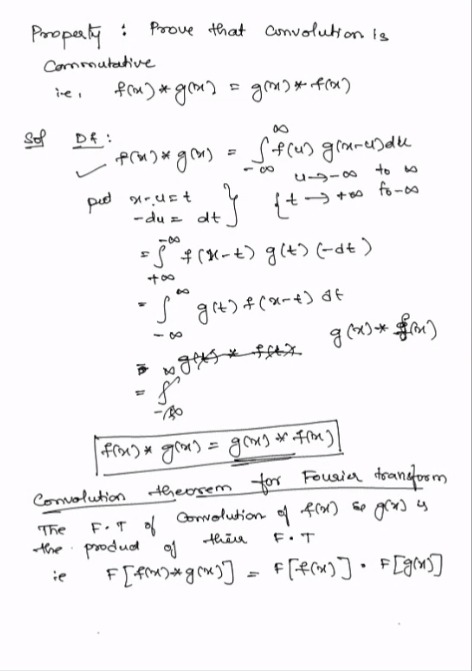 Property : Prove that convolution is
Commutative
i.e, f(x) * g(x) = g(x) * f(x)
Sol Df :
f(x) * g(x) = ∫_{-∞}^{∞} f(u) g(x-u) du
u → -∞ to ∞
put x-u = t } { t → +∞ to -∞
-du = dt
= ∫_{+∞}^{-∞} f(x-t) g(t) (-dt)
= ∫_{-∞}^{∞} g(t) f(x-t) dt
g(x) * f(x)
= g(t) * f(t)
= ∫_{-∞}^{∞}
f(x) * g(x) = g(x) * f(x)
Convolution theorem for Fourier transform
The F.T of Convolution of f(x) & g(x) is
the product of their F.T
ie F[f(x)*g(x)] = F[f(x)] . F[g(x)]